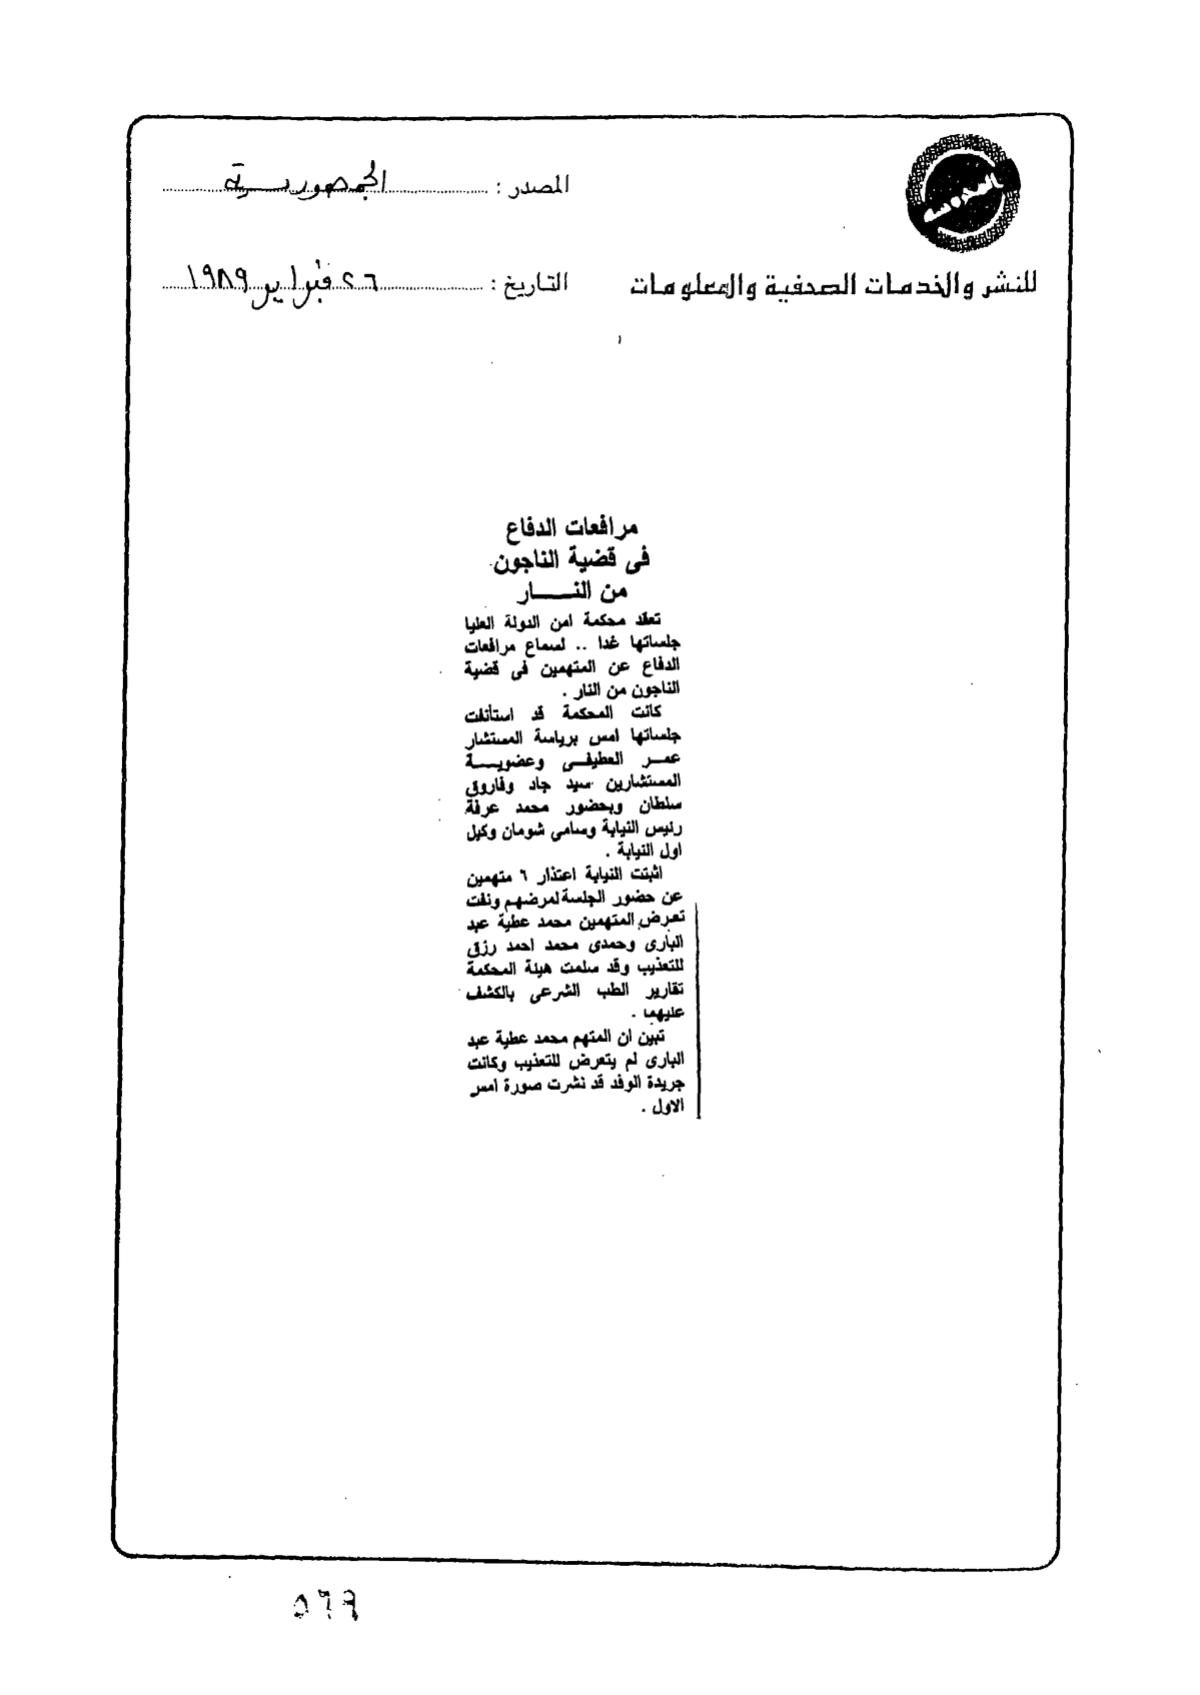 المصدر : الجمهورية
للنشر والخدمات الصحفية والمعلومات
التاريخ : ٢٦ فبراير ١٩٨٩
مرافعات الدفاع
فى قضية الناجون
من النـــــار
تعقد محكمة امن الدولة العليا
جلساتها غدا .. لسماع مرافعات
الدفاع عن المتهمين فى قضية
الناجون من النار .
كانت المحكمة قد استأنفت
جلساتها امس برياسة المستشار
عمـر العطيفـى وعضويـــة
المستشارين سيد جاد وفاروق
سلطان وبحضور محمد عرفة
رئيس النيابة وسامى شومان وكيل
اول النيابة .
اثبتت النيابة اعتذار ٦ متهمين
عن حضور الجلسة لمرضهم ونفت
تعرض المتهمين محمد عطية عبد
البارى وحمدى محمد احمد رزق
للتعذيب وقد سلمت هيئة المحكمة
تقارير الطب الشرعى بالكشف
عليهما .
تبين ان المتهم محمد عطية عبد
البارى لم يتعرض للتعذيب وكانت
جريدة الوفد قد نشرت صورة امس
الاول .